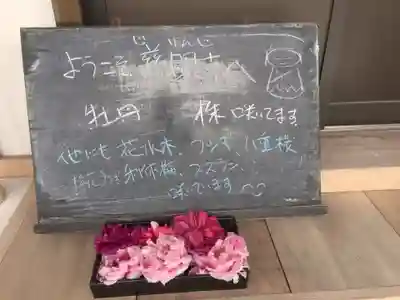 じ りんじ
ようこそ 慈 寺へ
牡丹 株咲いてます
他にも 花水木、 八重桜
利休梅、スズラン、
咲いています